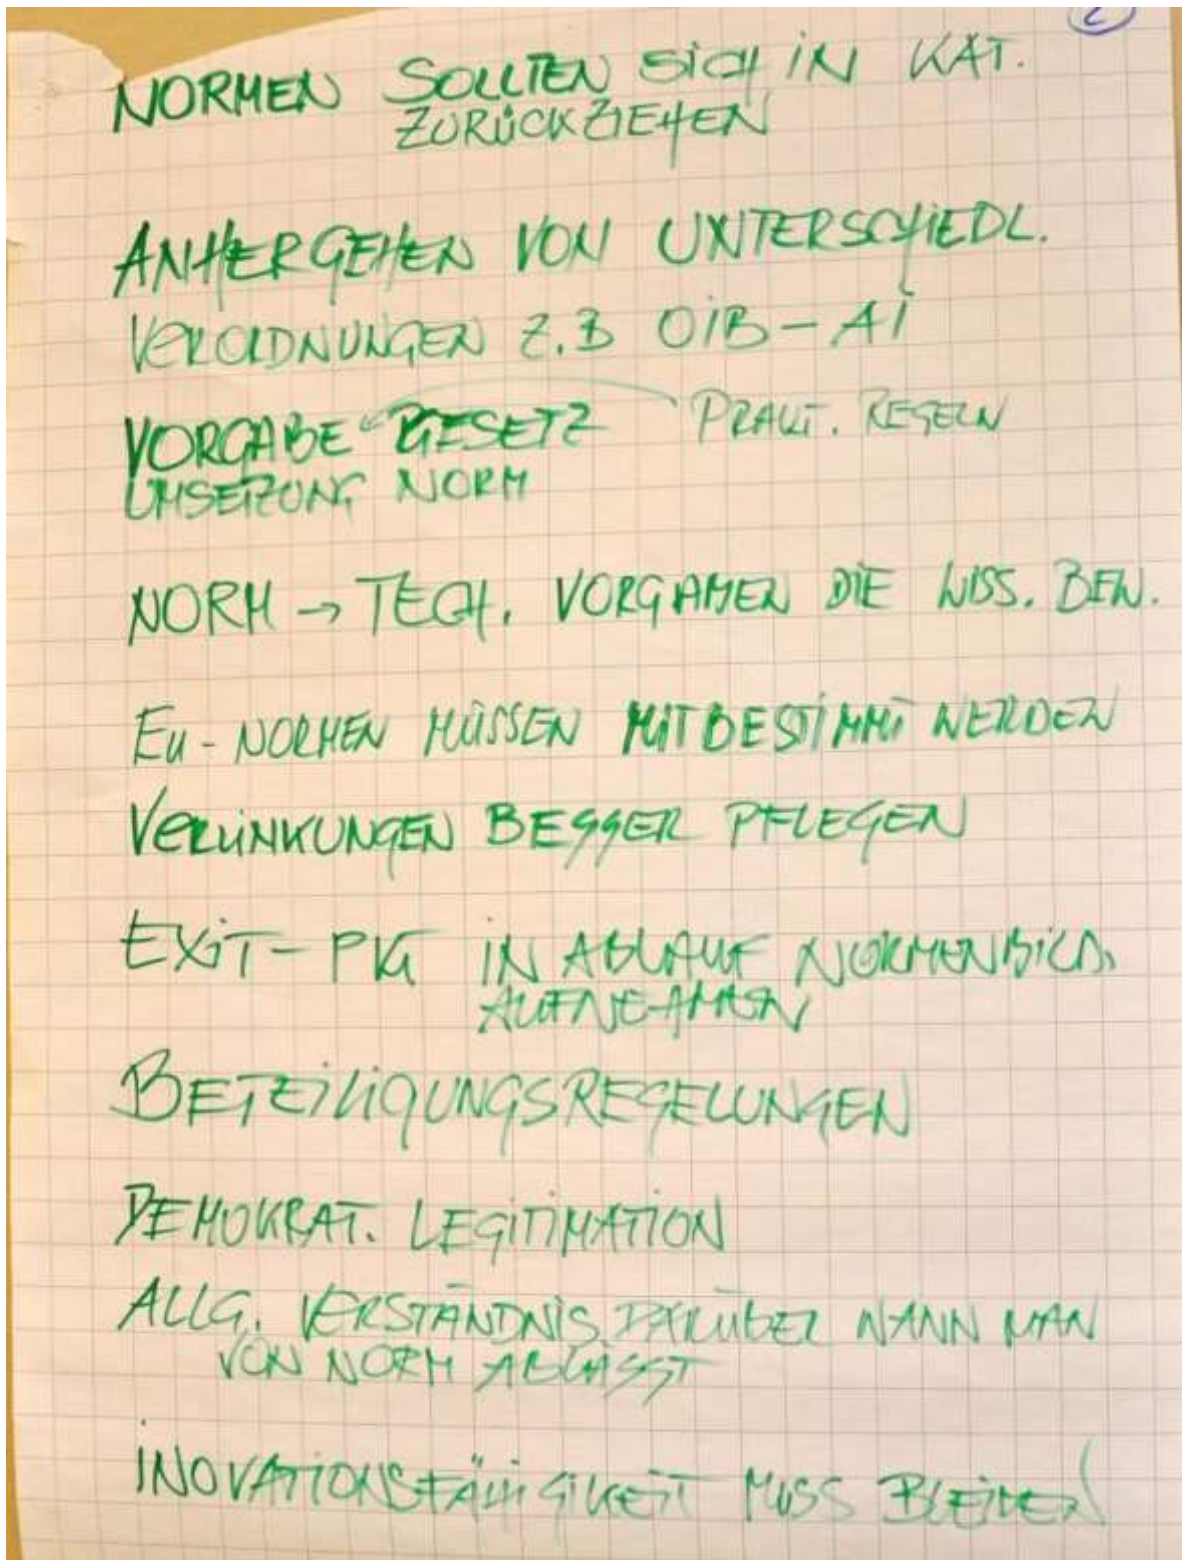 2
NORMEN SOLLTEN SICH IN KAT.
ZURÜCKZIEHEN
VON UNTERSCHIEDL.
VERORDNUNGEN Z.B OIB - AI
VORGABE GESETZ PRAKT. REGELN
UMSETZUNG NORM
NORM → TECH. DIE WISS. BEW.
EU - NORMEN MÜSSEN MITBESTIMMT WERDEN
VERLINKUNGEN BESSER PFLEGEN
EXIT - PKT IN ABLAUF NORMENBILD.
AUFNEHMEN
BETEILIGUNGSREGELUNGEN
DEMOKRAT. LEGITIMATION
ALLG. VERSTÄNDNIS DARÜBER WANN MAN
VON NORM ABLÄSST
INOVATIONSFÄHIGKEIT MUSS BLEIBEN